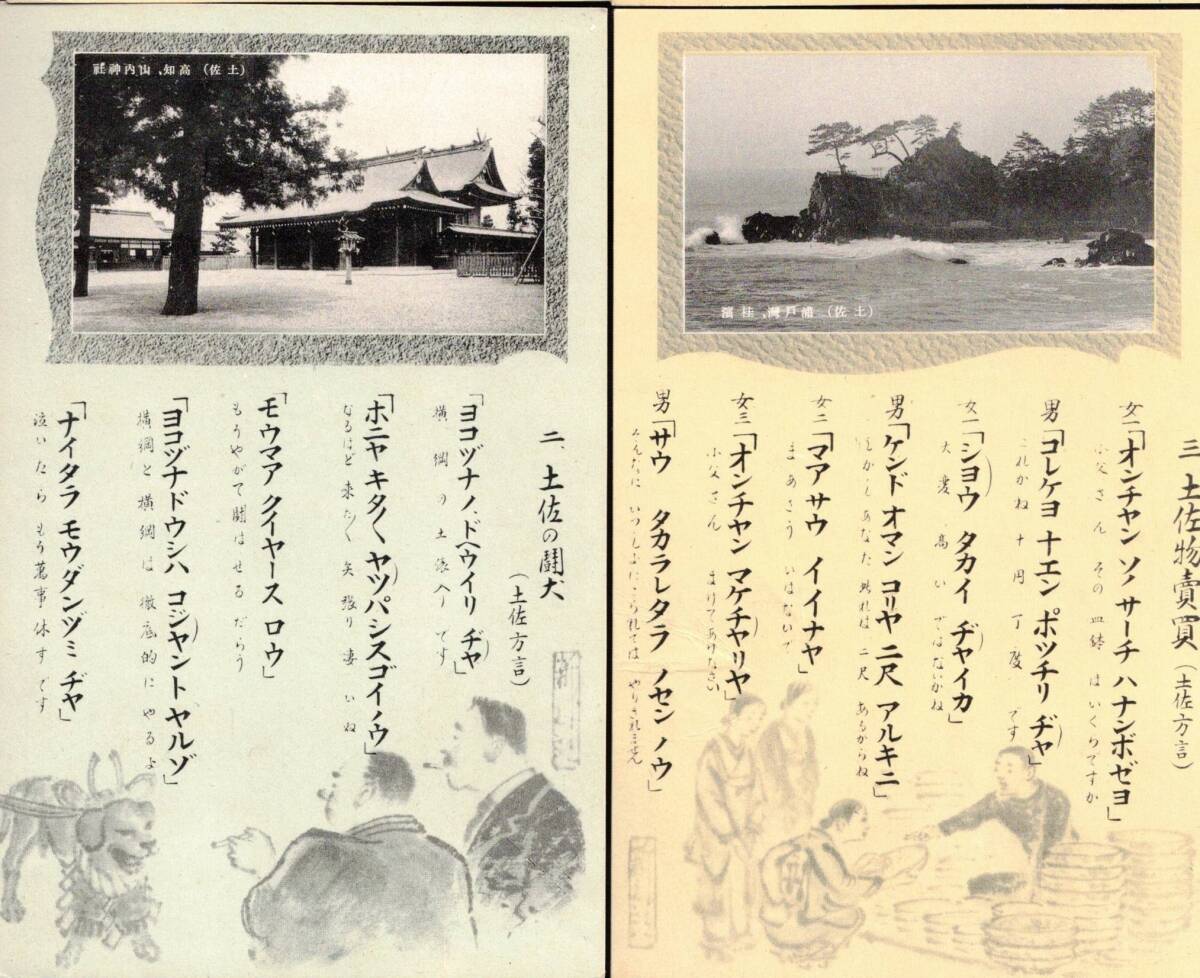 (土佐) 高知、山内神社
二、土佐の闘犬
(土佐方言)
「ヨコヅナノ、ドヘウイリ ヂヤ」
横綱の土俵入りです
「ホニヤ キタ〱 ヤツパシスゴイノウ」
なるほど来た〱 矢張り凄いね
「モウマア クイヤース ロウ」
もうやがて闘はせるだらう
「ヨコヅナドウシハ コジヤントヤルゾ」
横綱と横綱は徹底的にやるよ
「ナイタラ モウダンヅミ ヂヤ」
泣いたら もう萬事休すです
(土佐) 浦戸灣、桂濱
三 土佐物賣買 (土佐方言)
女一「オンチヤン ソノサーチ ハナンボゼヨ」
小父さん その皿鉢 はいくらですか
男「コレケヨ 十エン ポツチリ ヂヤ」
これかね 十円 丁度 です
女一「シヨウ タカイ ヂヤイカ」
大変 高い ではないかね
男「ケンド オマン コリヤ 二尺 アルキニ」
しかしあなた 此れは 二尺 あるからね
女二「マア サウ イイナヤ」
まあさう いはないで
女三「オンチヤン マケチヤリヤ」
小父さん まけてあげなさい
男「サウ タカラレタラ ノセン ノウ」
そんなに られては やりきれません